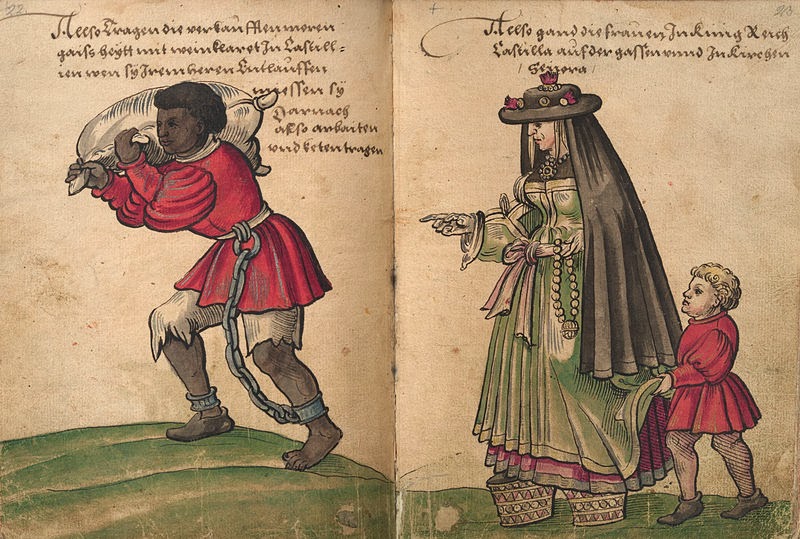 22
Allso Tragen die verkaufften moren
gaiss heytt mit wein klaret In Castill=
ien wen sy Irem heren Entlauffen
muessen sy
Darnach
also arbaiten
und keten tragen
+
23
Allso gand die frauen In Kunig Reich
Castilla auf der gassen unnd In Kirchen
/ Senora /